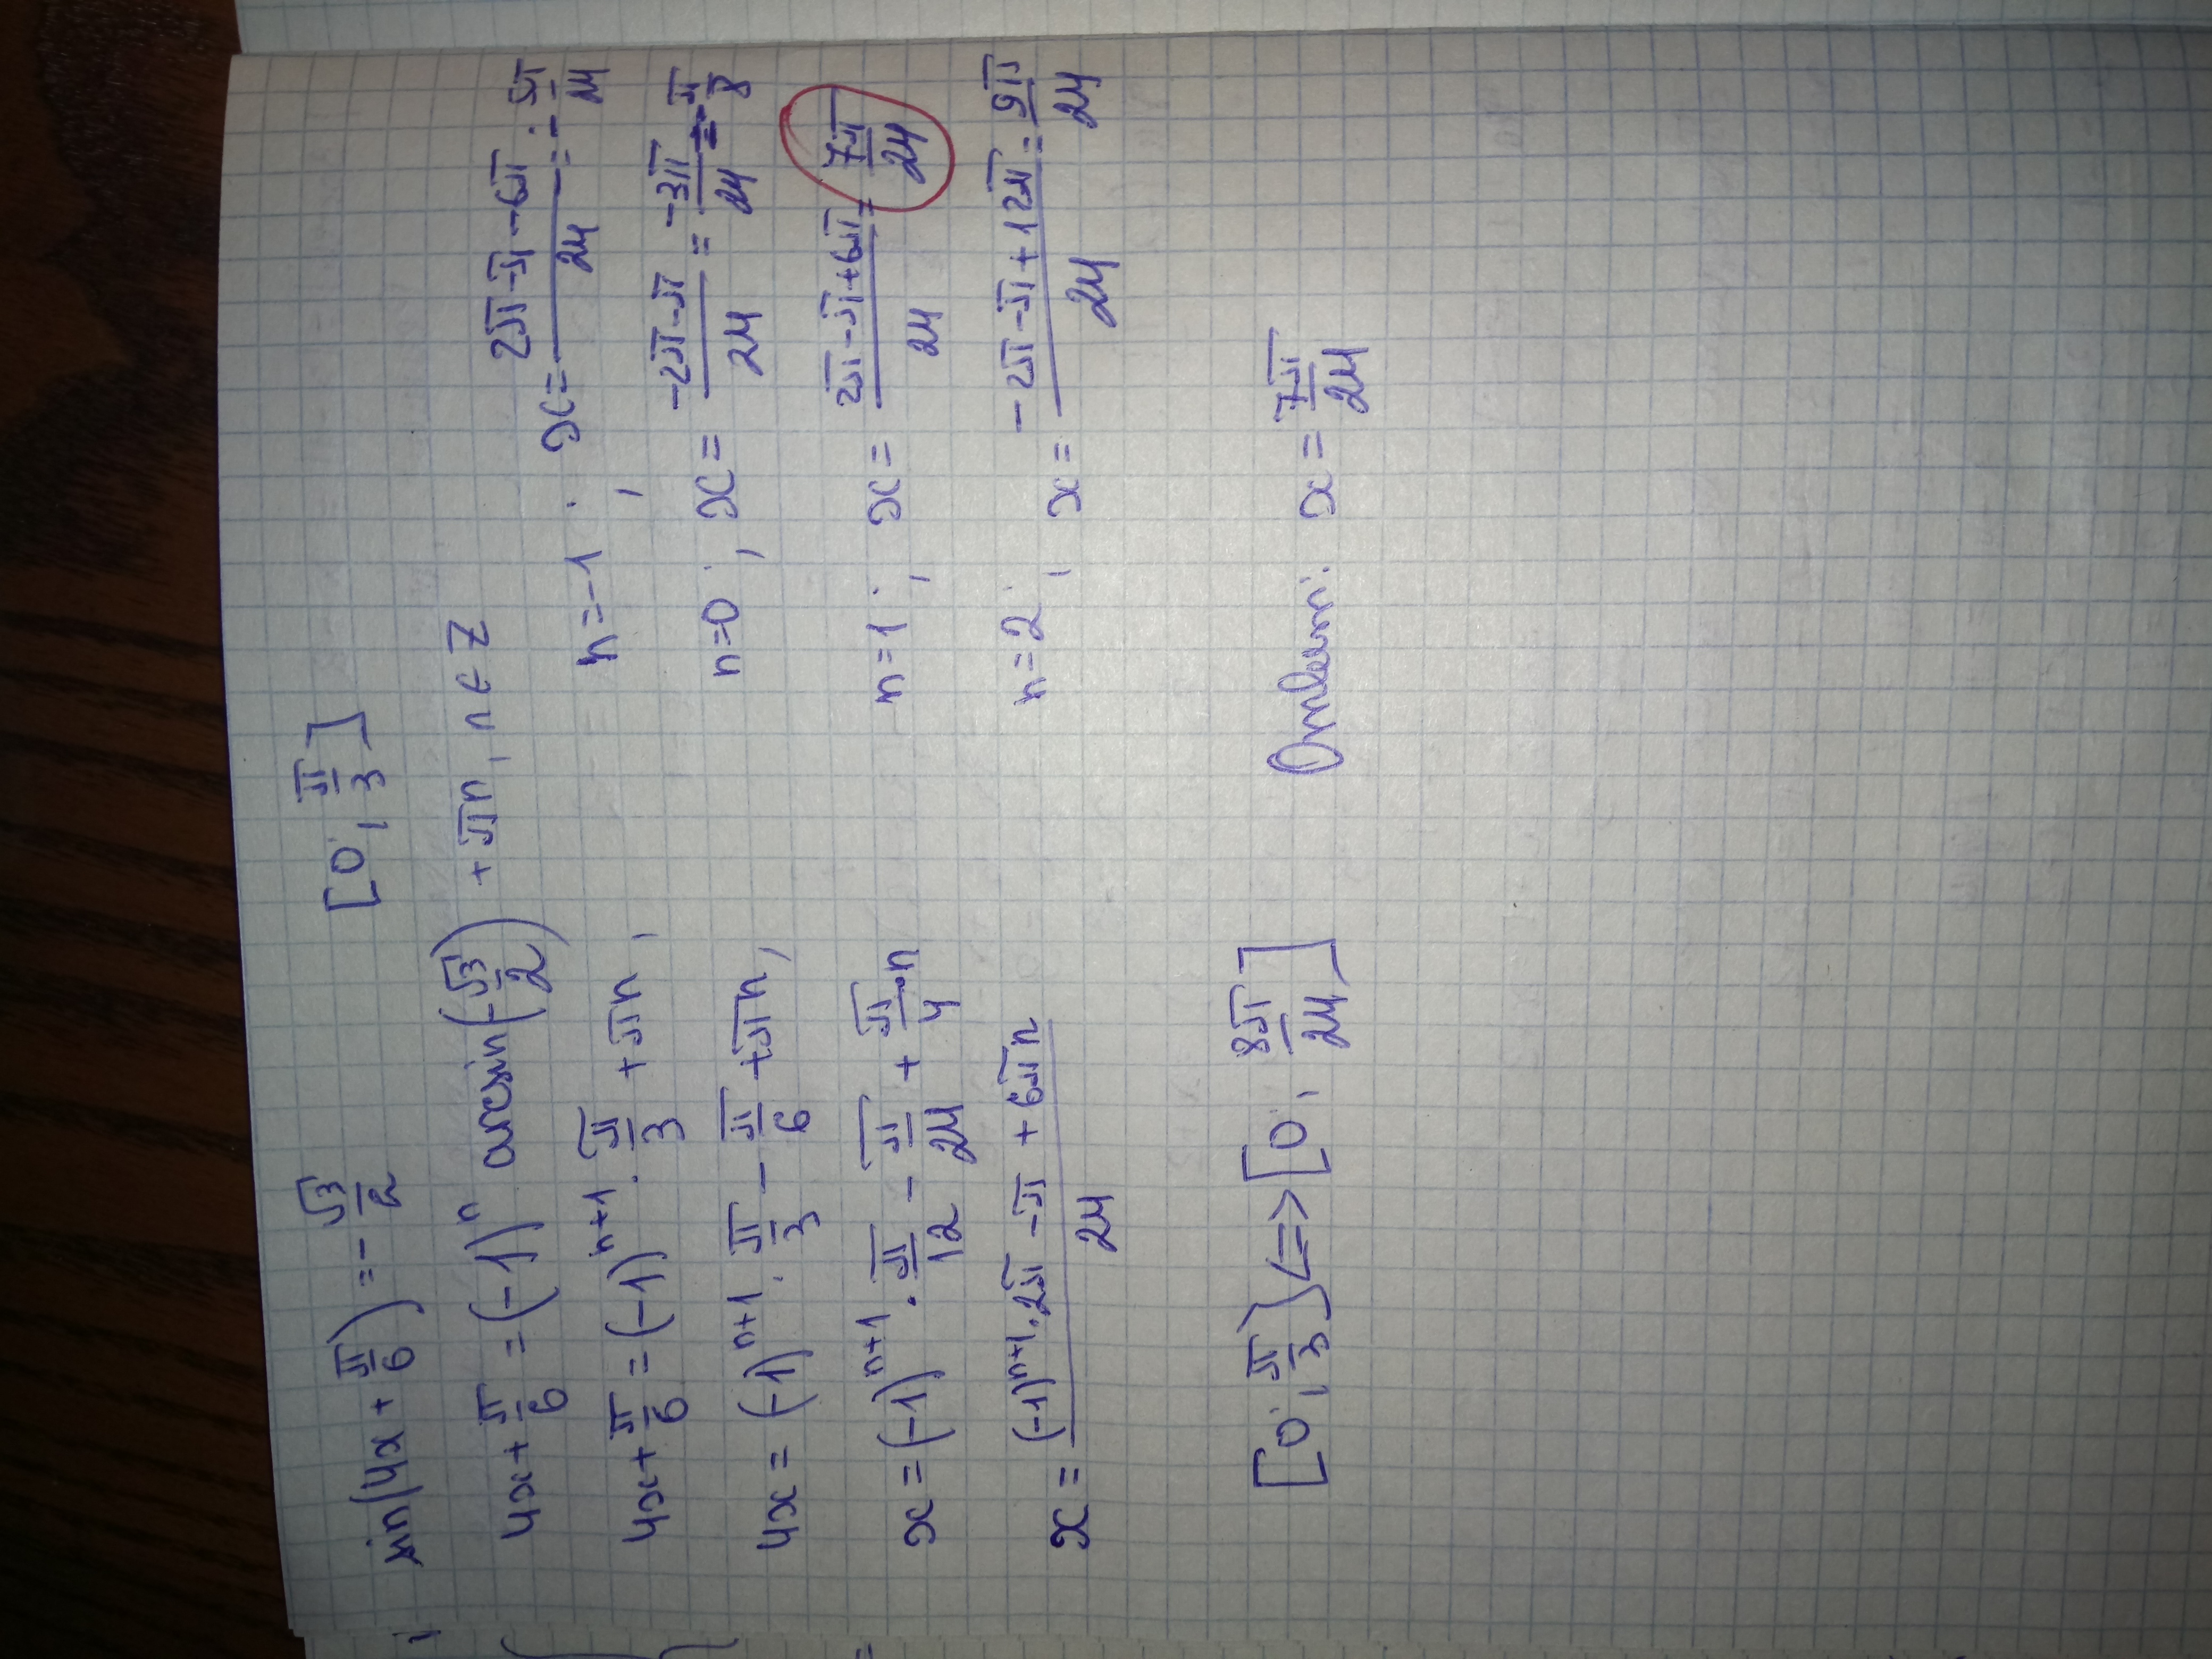 sin(4x + π/6) = -√3/2 [0; π/3]
4x + π/6 = (-1)ⁿ arcsin(-√3/2) + πn, n ∈ Z
4x + π/6 = (-1)ⁿ⁺¹ · π/3 + πn,
4x = (-1)ⁿ⁺¹ · π/3 - π/6 + πn,
x = (-1)ⁿ⁺¹ · π/12 - π/24 + π/4 · n
x = ((-1)ⁿ⁺¹ · 2π - π + 6πn)/24
[0; π/3] <=> [0; 8π/24]
n = -1; x = (2π - π - 6π)/24 = -5π/24
n = 0; x = (-2π - π)/24 = -3π/24 = -π/8
n = 1; x = (2π - π + 6π)/24 = 7π/24
n = 2; x = (-2π - π + 12π)/24 = 9π/24
Ответ: x = 7π/24